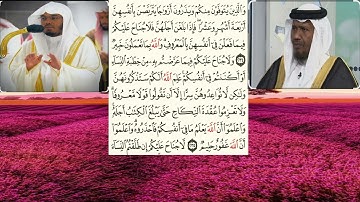 وَالَّذِينَ يُتَوَفَّوْنَ مِنكُمْ وَيَذَرُونَ أَزْوَاجًا يَتَرَبَّصْنَ بِأَنفُسِهِنَّ
أَرْبَعَةَ أَشْهُرٍ وَعَشْرًا فَإِذَا بَلَغْنَ أَجَلَهُنَّ فَلَا جُنَاحَ عَلَيْكُمْ
فِيمَا فَعَلْنَ فِي أَنفُسِهِنَّ بِالْمَعْرُوفِ وَاللَّهُ بِمَا تَعْمَلُونَ خَبِيرٌ
وَلَا جُنَاحَ عَلَيْكُمْ فِيمَا عَرَّضْتُم بِهِ مِنْ خِطْبَةِ النِّسَاءِ
أَوْ أَكْنَنتُمْ فِي أَنفُسِكُمْ عَلِمَ اللَّهُ أَنَّكُمْ سَتَذْكُرُونَهُنَّ
وَلَٰكِن لَّا تُوَاعِدُوهُنَّ سِرًّا إِلَّا أَن تَقُولُوا قَوْلًا مَّعْرُوفًا
وَلَا تَعْزِمُوا عُقْدَةَ النِّكَاحِ حَتَّىٰ يَبْلُغَ الْكِتَابُ أَجَلَهُ
وَاعْلَمُوا أَنَّ اللَّهَ يَعْلَمُ مَا فِي أَنفُسِكُمْ فَاحْذَرُوهُ وَاعْلَمُوا
أَنَّ اللَّهَ غَفُورٌ حَلِيمٌ لَّا جُنَاحَ عَلَيْكُمْ إِن طَلَّقْتُمُ النِّسَاءَ